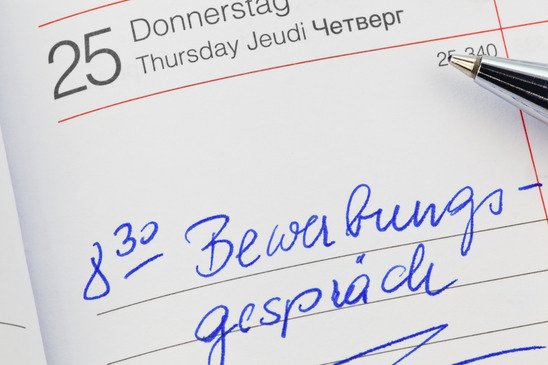 25 Donnerstag
Thursday Jeudi Четверг
25-340
8 30 Bewerbungs-
gespräch